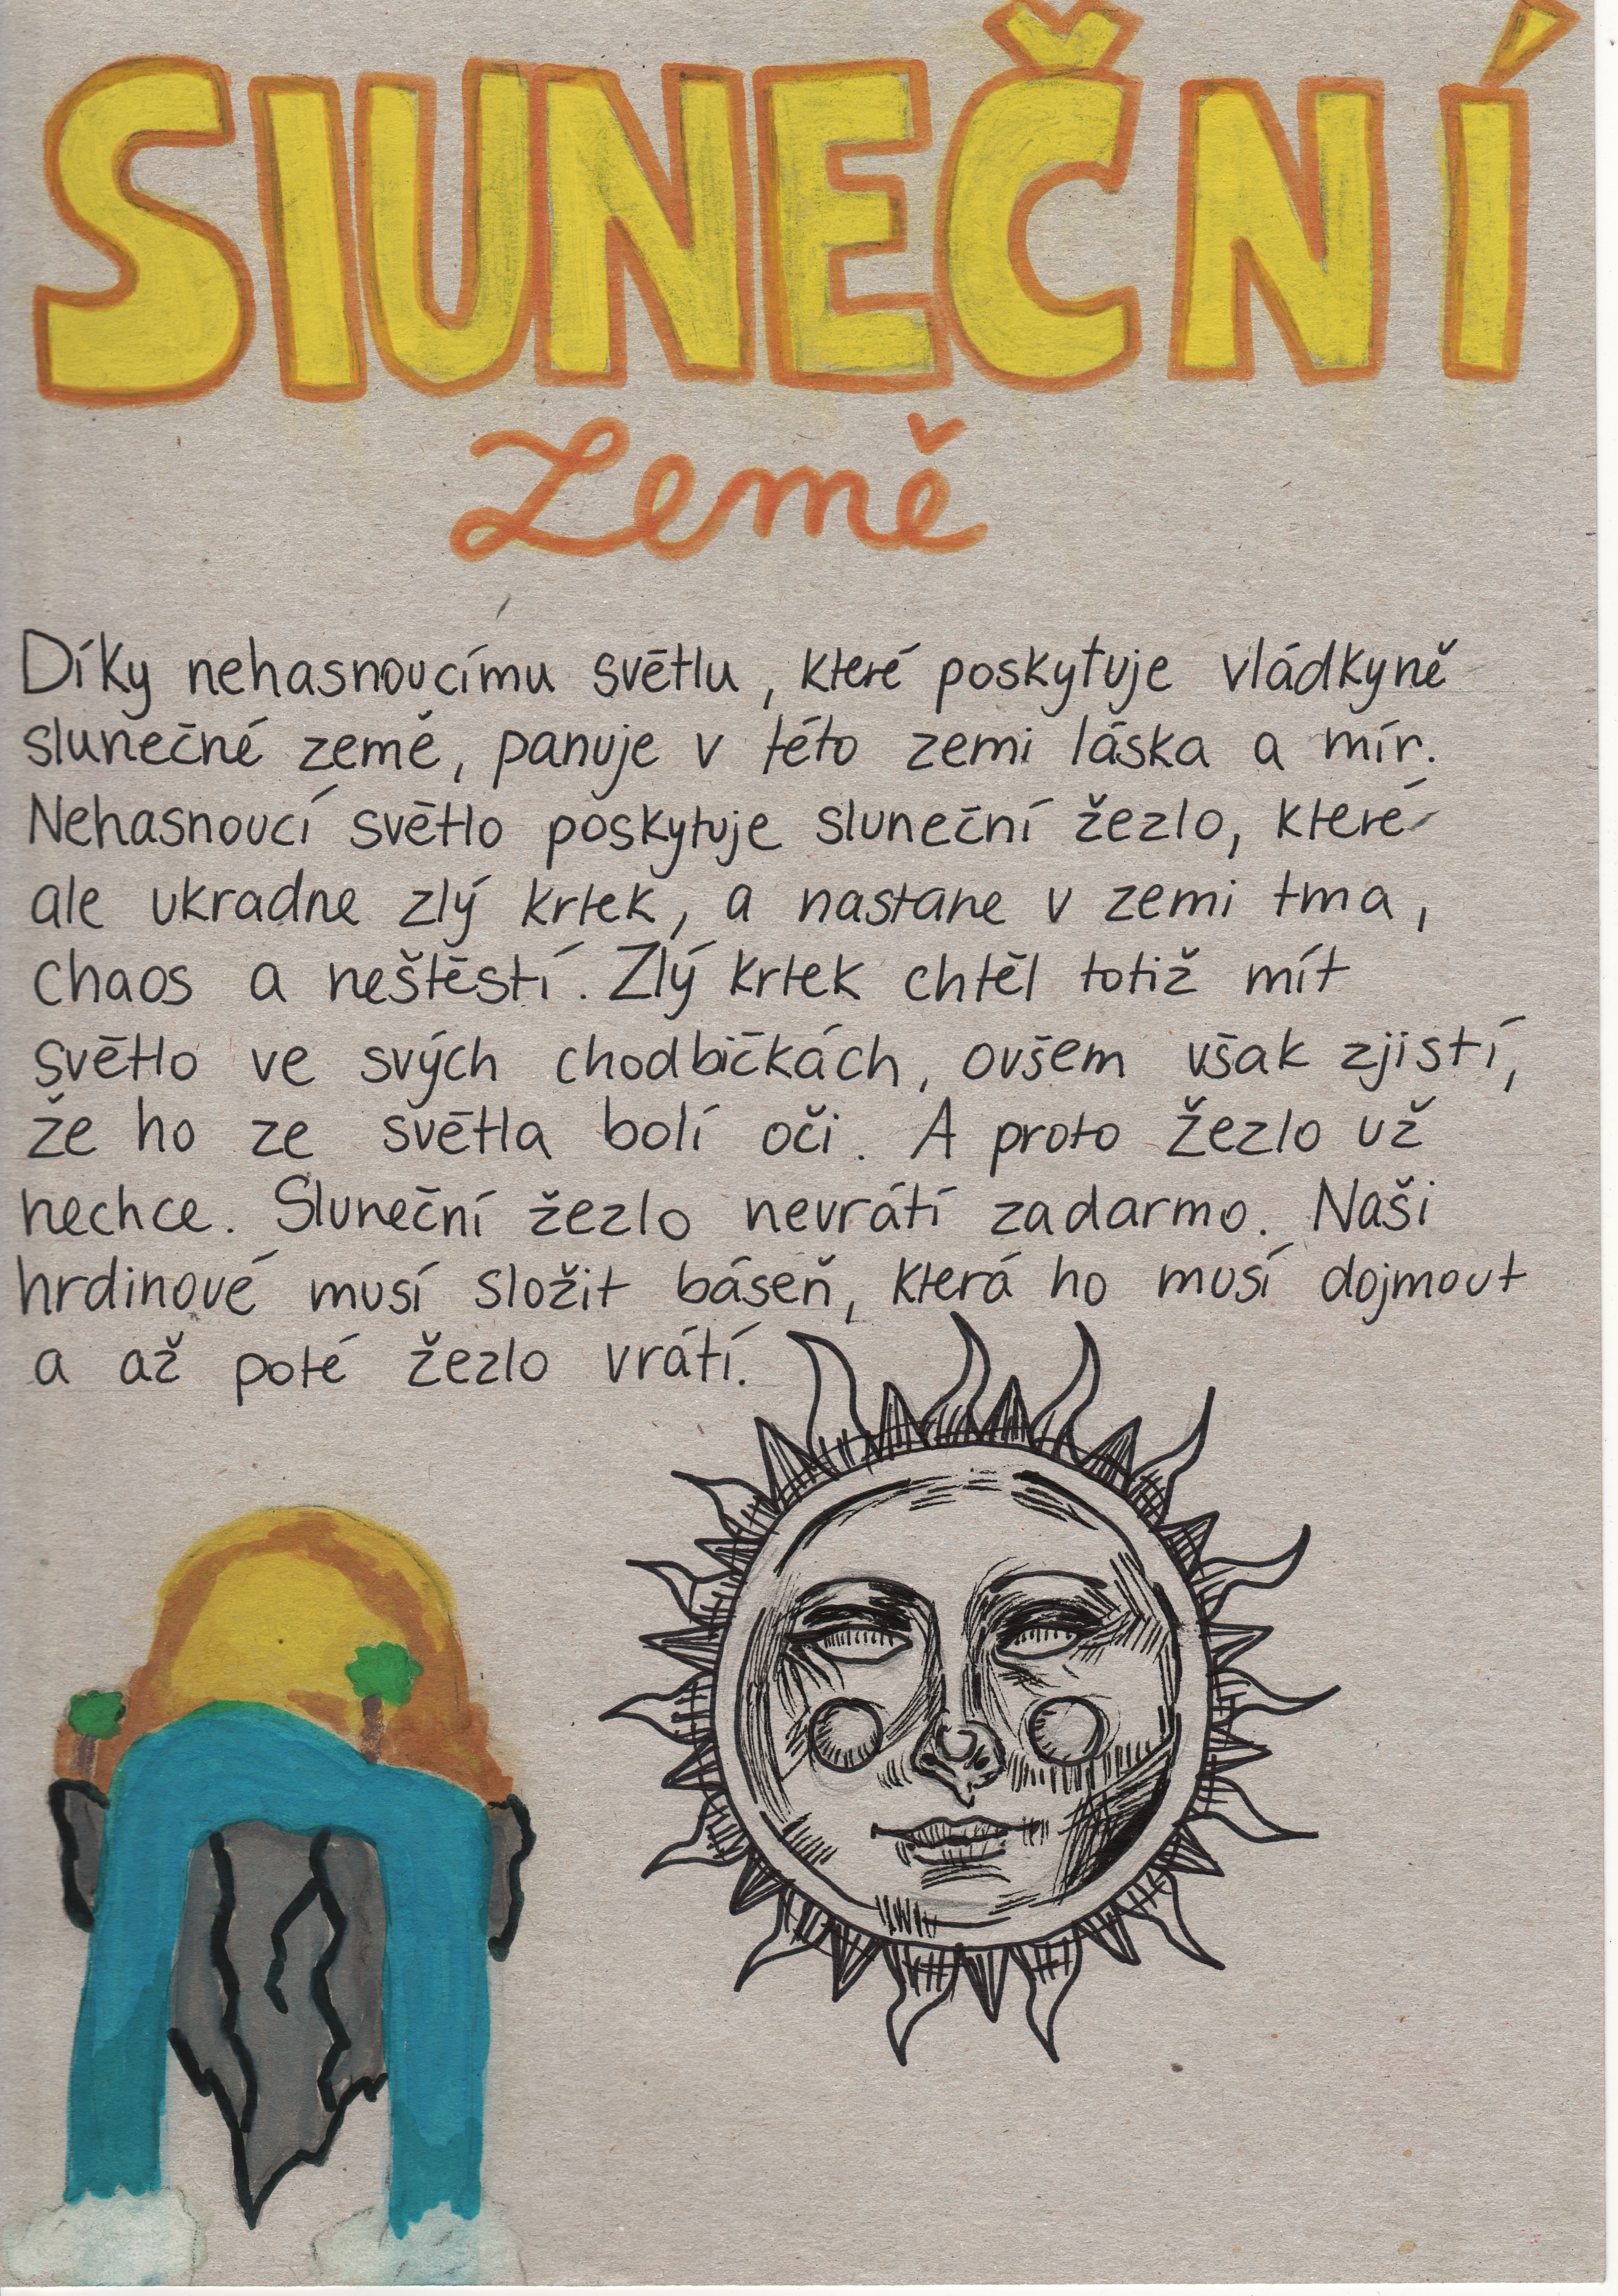 SlUNEČNÍ
Země
Díky nehasnoucímu světlu, které poskytuje vládkyně
slunečné země, panuje v této zemi láska a mír.
Nehasnoucí světlo poskytuje sluneční žezlo, které
ale ukradne zlý krtek, a nastane v zemi tma,
chaos a neštěstí. Zlý krtek chtěl totiž mít
světlo ve svých chodbičkách, ovšem však zjistí,
že ho ze světla bolí oči. A proto žezlo už
nechce. Sluneční žezlo nevrátí zadarmo. Naši
hrdinové musí složit báseň, která ho musí dojmout
a až poté žezlo vrátí.